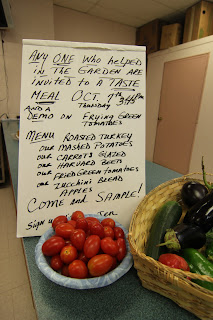 Any ONE Who helped
in THE GARDEN ARE
invited to A TASTE
MEAL OCT. 7th 3:45 PM
Thursday
AND A
DEMO ON FRYING GREEN
TOMATOES
MENU ROASTED TURKEY
OUR MASHED POTATOES
OUR CARROTS GLAZED
OUR HARVARD BEETS
OUR FRIED GREEN TOMATOES
OUR ZUCCHINI BREAD
APPLES
COME AND SAMPLE!
Sign u